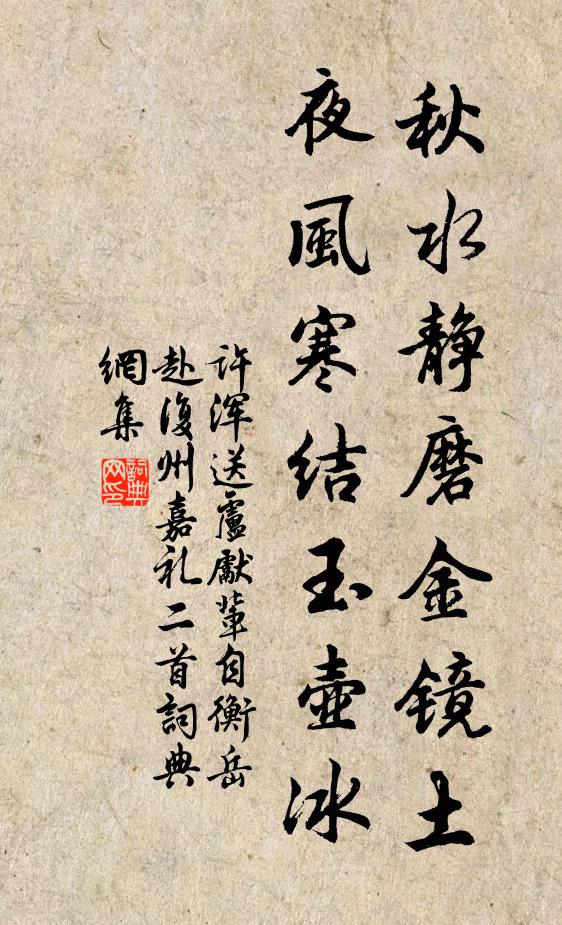 秋水静磨金镜土
夜風寒结玉壺冰
许渾送盧獻輩自衡岳
赴復州嘉礼二首詞典
網集
詞典网印